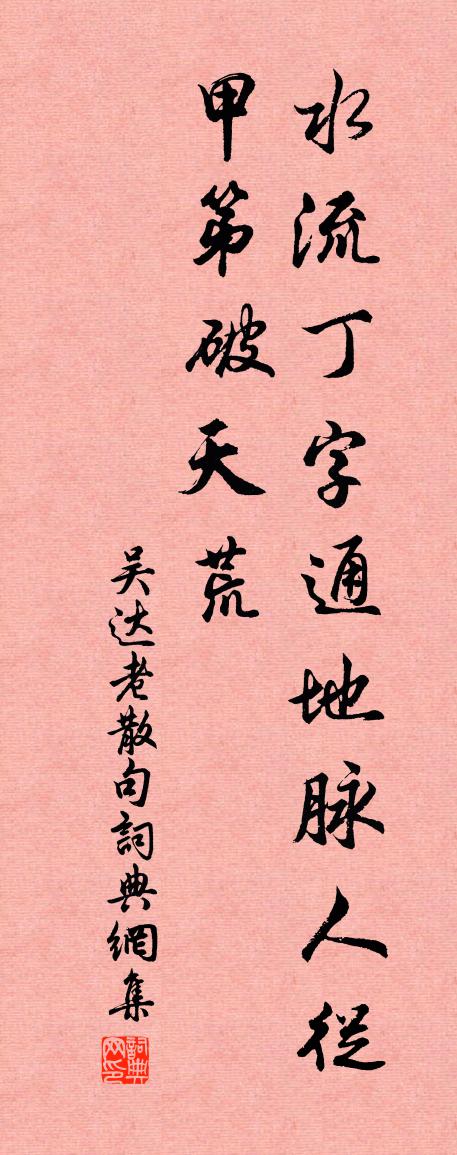 水流丁字通地脉人從
甲第破天荒
吴达老散句詞典網集
詞典网印